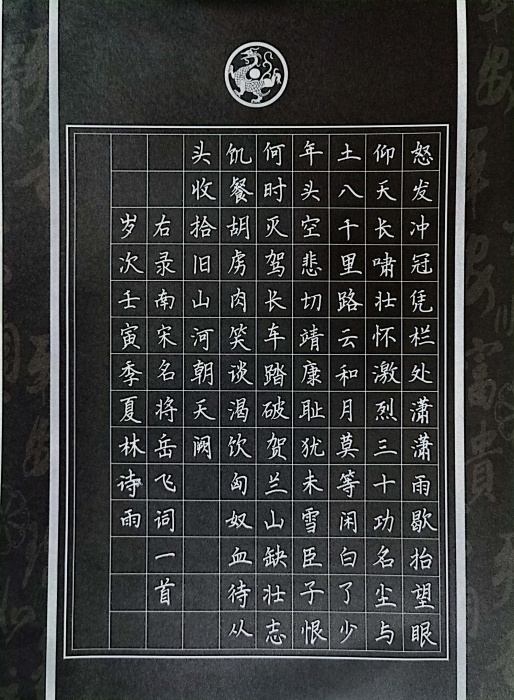 怒发冲冠凭栏处潇潇雨歇抬望眼
仰天长啸壮怀激烈三十功名尘与
土八千里路云和月莫等闲白了少
年头空悲切靖康耻犹未雪臣子恨
何时灭驾长车踏破贺兰山缺壮志
饥餐胡虏肉笑谈渴饮匈奴血待从
头收拾旧山河朝天阙
右录南宋名将岳飞词一首
岁次壬寅季夏林诗雨